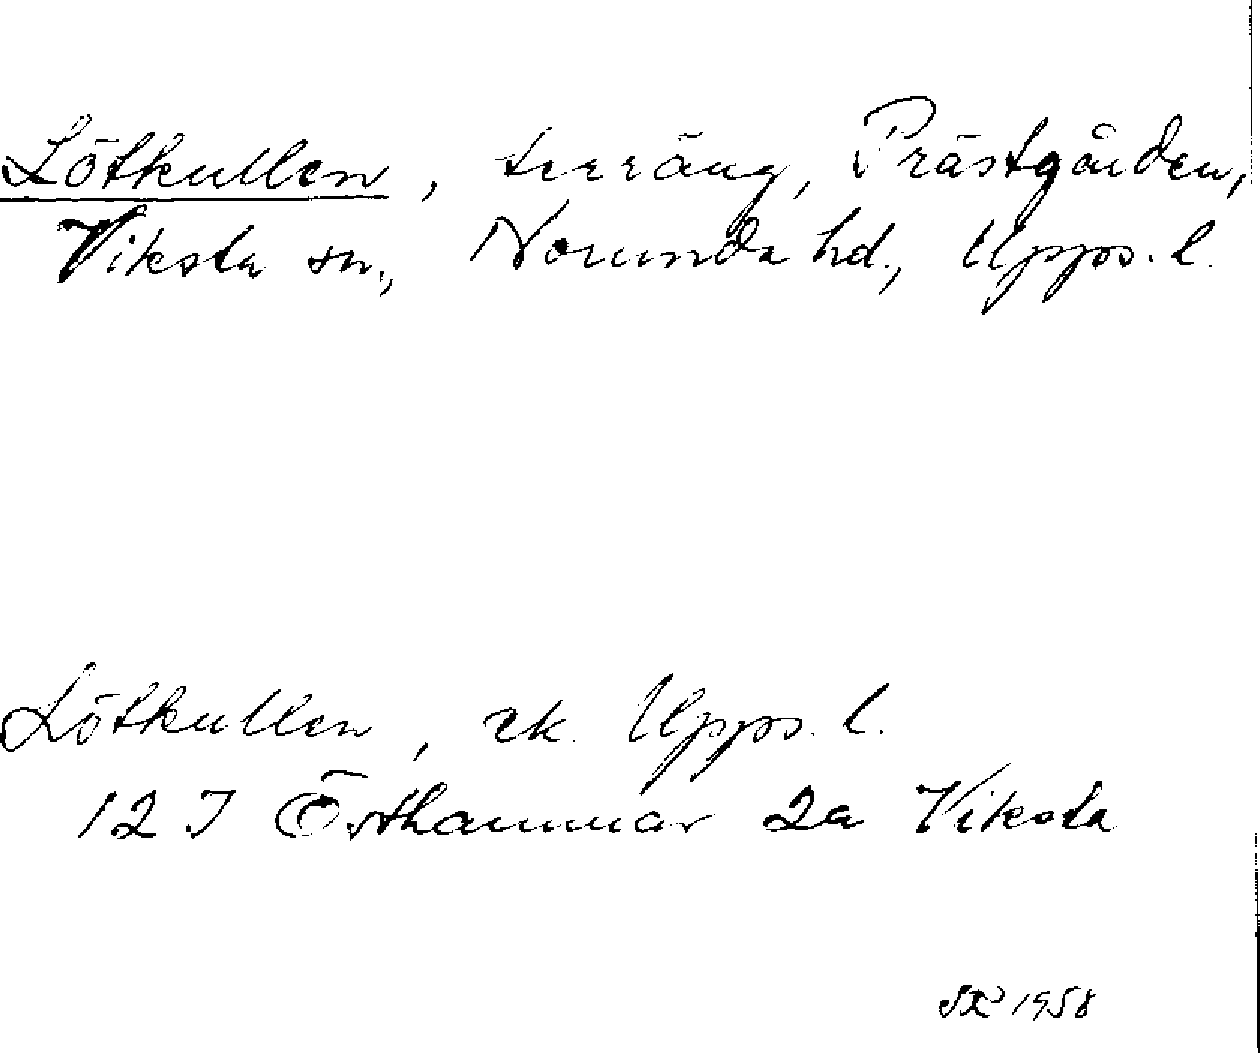 Lötkullen, terräng, Prästgården,
Viksta sn., Norunda hd., Upps. l.
Lötkullen, ek. Upps. l.
12 I Östhammar 2a Viksta
1958